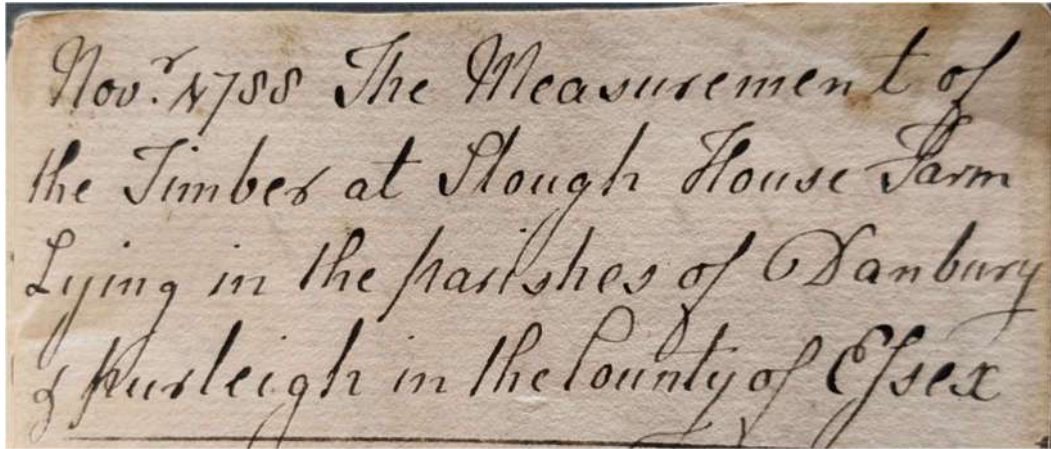 Nov.r 1788 The Measurement of
the Timber at Slough House Farm
Lying in the parishes of Danbury
& purleigh in the County of Essex